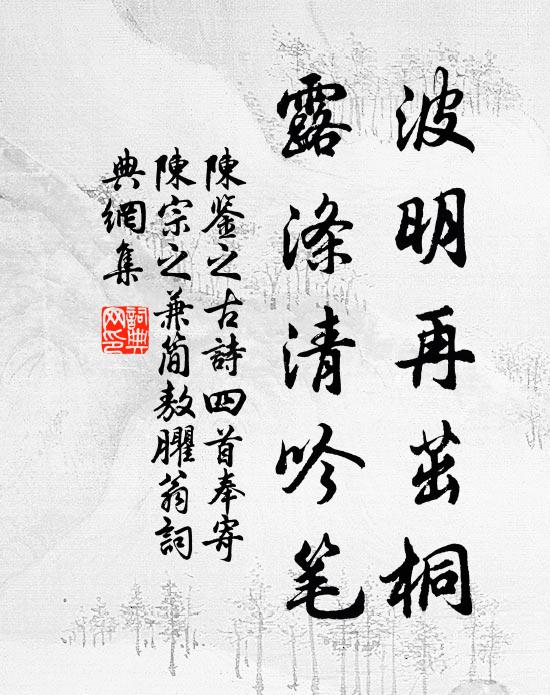 波明再茁桐
露滌清吟笔
陳鉴之古詩四首奉寄
陳宗之兼简敖臞翁詞
典網集
詞典網印